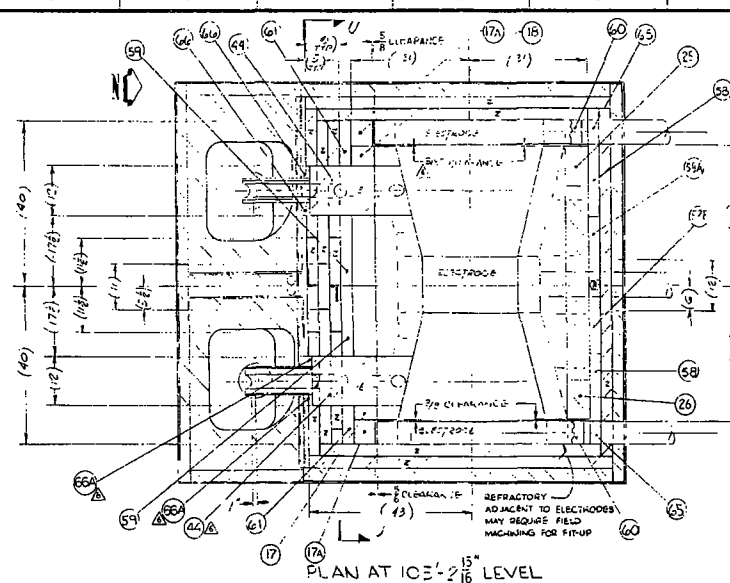 U
5/8 CLEARANCE
17A
18
59
66
66
44
61
60
65
25
58
N
(31)
(31)
ELECTRODE
3/8 CLEARANCE
(40)
(12)
(17½)
(11½)
(11)
(17½)
(11½)
(40)
(12)
ELECTRODE
(6)
(12)
58
26
3/8 CLEARANCE
ELECTRODE
66A
59
66A
44
61
17
17A
5/8 CLEARANCE
(43)
REFRACTORY
ADJACENT TO ELECTRODES
MAY REQUIRE FIELD
MACHINING FOR FIT-UP
65
60
PLAN AT 103'-2 15/16" LEVEL